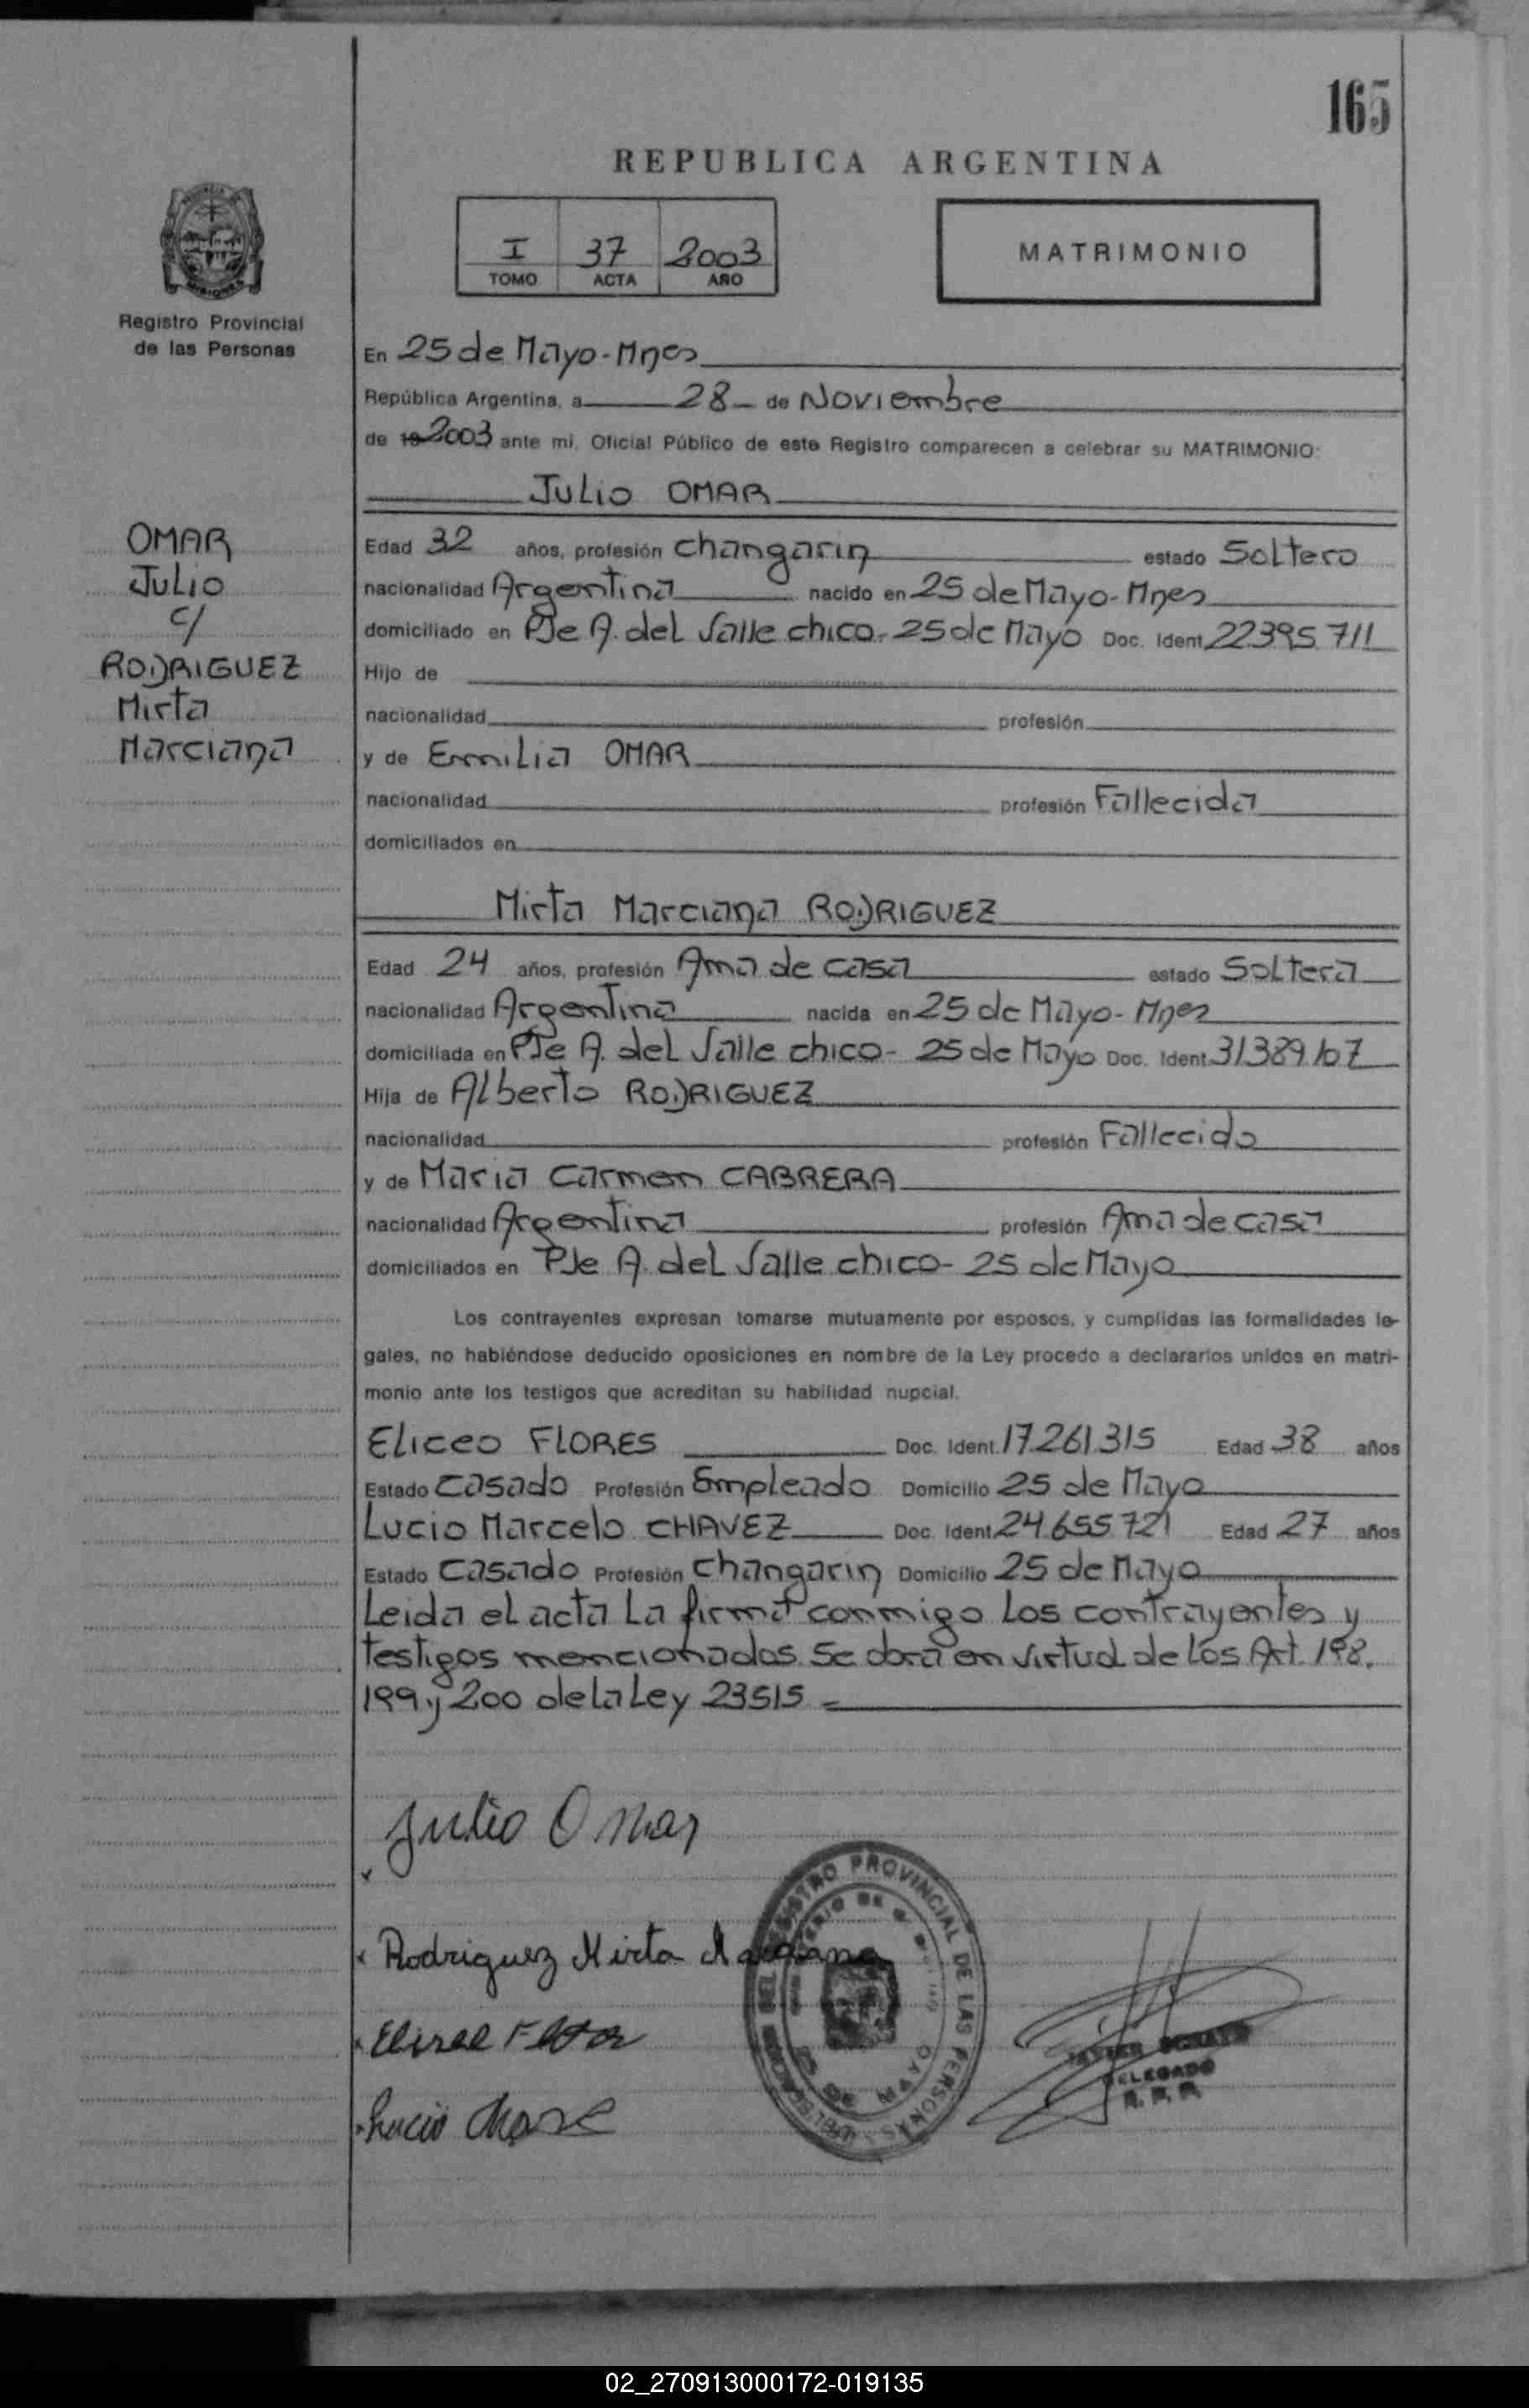 165
REPUBLICA ARGENTINA
I 37 2003
TOMO ACTA AÑO
MATRIMONIO
Registro Provincial
de las Personas
En 25 de Mayo-Mnes
República Argentina, a 28 de Noviembre
de 19 2003 ante mi, Oficial Público de este Registro comparecen a celebrar su MATRIMONIO:
Julio OMAR
OMAR
Julio
c/
RODRIGUEZ
Mirta
Marciana
Edad 32 años, profesión changarin estado Soltero
nacionalidad Argentina nacido en 25 de Mayo-Mnes
domiciliado en PJe A. del Valle chico-25 de Mayo Doc. Ident. 22.395.711
Hijo de
nacionalidad profesión
y de Emilia OMAR
nacionalidad profesión Fallecida
domiciliados en
Mirta Marciana RODRIGUEZ
Edad 24 años, profesión Ama de casa estado Soltera
nacionalidad Argentina nacida en 25 de Mayo-Mnes
domiciliada en PJe A. del Valle chico- 25 de Mayo Doc. Ident. 31.389.107
Hija de Alberto RODRIGUEZ
nacionalidad profesión Fallecido
y de Maria Carmen CABRERA
nacionalidad Argentina profesión Ama de casa
domiciliados en PJe A. del Valle chico- 25 de Mayo
Los contrayentes expresan tomarse mutuamente por esposos, y cumplidas las formalidades le-
gales, no habiéndose deducido oposiciones en nombre de la Ley procedo a declararlos unidos en matri-
monio ante los testigos que acreditan su habilidad nupcial.
Eliceo FLORES Doc. Ident. 17.261.315 Edad 38 años
Estado Casado Profesión Empleado Domicilio 25 de Mayo
Lucio Marcelo CHAVEZ Doc. Ident. 24.655.721 Edad 27 años
Estado Casado Profesión changarin Domicilio 25 de Mayo
Leida el acta La firma conmigo Los contrayentes y
testigos mencionados. Se obra en virtud de Los Art. 198,
199 y 200 de la Ley 23515 -
Julio Omar
Rodriguez Mirta Marciana
REGISTRO PROVINCIAL DE LAS PERSONAS
Lucio
DELEGADO
R. P. P.
02_270913000172-019135